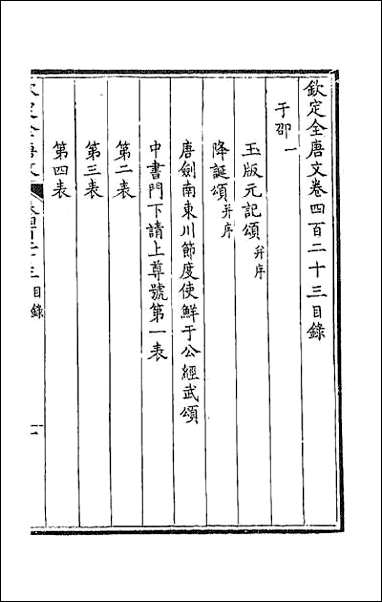 欽定全唐文卷四百二十三目錄
于邵一
玉版元記頌并序
降誕頌并序
唐劍南東川節度使鮮于公經武頌
中書門下請上尊號第一表
第二表
第三表
第四表
目錄
一